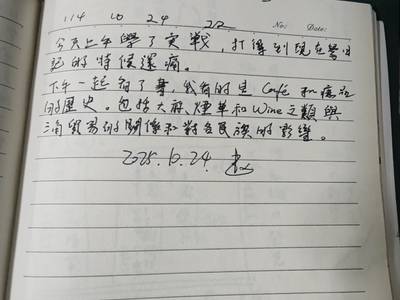 114 10 24 22 No: Date:
今天上午學了實戰,打得到現在寫日
記的時候還痛。
下午一起 了書,我看的是 Café 和
的歷史。包括大麻、煙草和Wine之類與
三角貿易的關係和對各民族的影響。
2025.10.24.